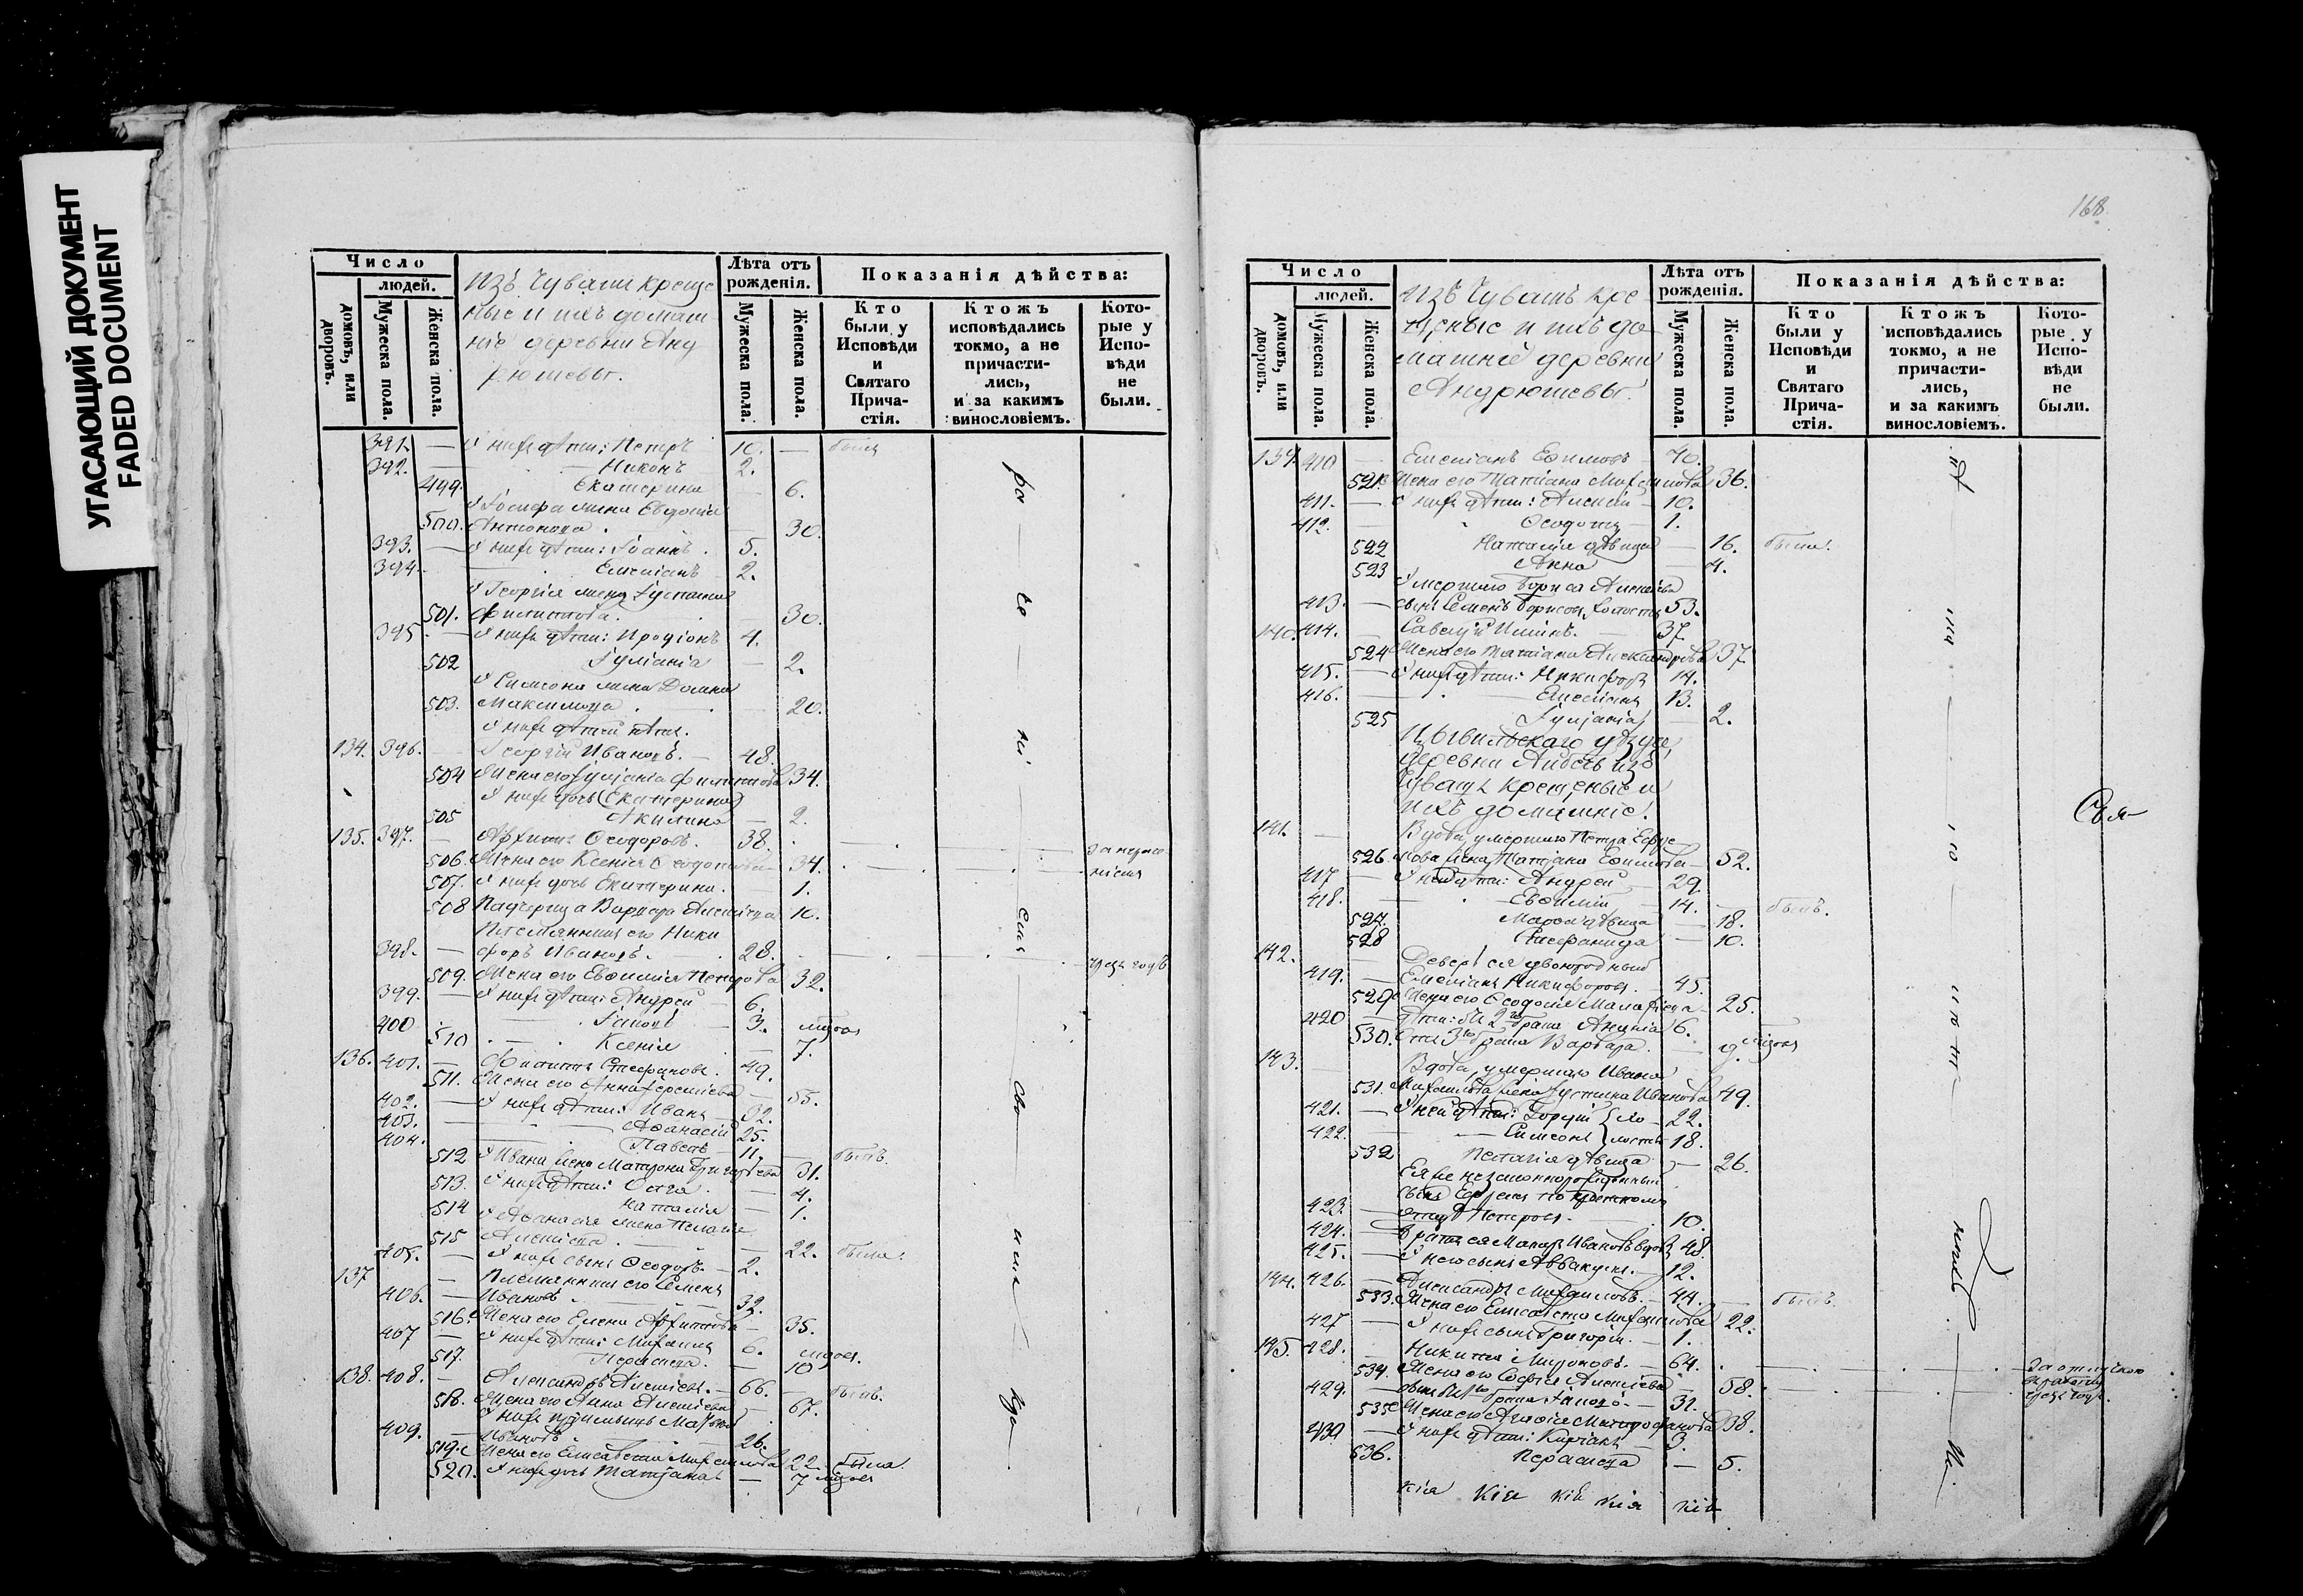 УГАСАЮЩИЙ ДОКУМЕНТ
FADED DOCUMENT
Число
людей.
домовъ, или дворовъ.
Мужеска пола.
Женска пола.
Изъ Чувашъ креще
ные и ихъ домаш
ніе деревни Анд
рюшевы.
Лѣта отъ рожденія.
Мужеска пола.
Женска пола.
Показанія дѣйства:
Кто были у Исповѣди и Святаго Прича-стія.
Ктожъ исповѣдались токмо, а не причасти-лись, и за какимъ винословіемъ.
Кото-рые у Испо-вѣди не были.
391. — У нихъ дѣти: Петръ 10. — были
392. — Никонъ 2.
499. Екатерина — 6.
У Іосифа жена Евдокія
500. Антонова — 30.
393. — У нихъ дѣти: Іоаннъ 5.
394. Емеліанъ 2.
У Георгія жена Іуліанія
501. Филиппова. — 30.
395. — У нихъ дѣти: Иродіонъ 4.
502 Іуліанія — 2.
У Симеона жена Домна
503. Максимова — 20.
У нихъ дѣтей нѣтъ.
134. 396. Георгій Ивановъ. — 48.
504 Жена его Іуліанія Филиппова 34.
У нихъ дочь (Екатерина)
505 Акилина — 2.
135. 397. Архипъ Ѳеодоровъ. 38.
506. Жена его Ксенія 34.
507. У нихъ дочь Екатерина. 1.
508 Падчерица Варвара Алексіева 10.
Племянникъ его Ники
398. — форъ Ивановъ. 28.
509. Жена его Евѳимія Петрова 32.
399. — У нихъ дѣти: Андрей 6.
400 Іаковъ 3.
510 Ксенія — 7.
136. 401. — Филиппъ Стефановъ. 49.
511. Жена его Анна — 55.
402. — У нихъ дѣти: Иванъ — 32.
403. Аѳанасій 25.
404. Павелъ — 11. — былъ.
512 У Ивана жена Матрона Григорьева 31.
513. У нихъ дѣти: Ольга — 4.
514 Наталія — 1.
У Аѳанасія жена Пелагія
515 Алексіева. — 22. была.
405. — У нихъ сынъ Ѳеодоръ. — 2.
137 — Племянникъ его Семенъ
406. — Ивановъ 32.
516. Жена его Елена Архипова — 35.
407 — У нихъ дѣти: Михаилъ 6.
517. Параскева. — 10
138. 408. — Александръ Алексіевъ. — 66. — былъ.
518. Жена его Анна Алексіева — 67.
409. — Ивановъ 26.
519. Жена его Елисавета Михаилова 22. была
520. У нихъ дочь Татьяна — 7
168.
Число
людей.
домовъ, или дворовъ.
Мужеска пола.
Женска пола.
Изъ Чувашъ кре
щеные и ихъ до
машніе деревни
Андрюшевы.
Лѣта отъ рожденія.
Мужеска пола.
Женска пола.
Показанія дѣйства:
Кто были у Исповѣди и Святаго Прича-стія.
Ктожъ исповѣдались токмо, а не причасти-лись, и за какимъ винословіемъ.
Кото-рые у Испо-вѣди не были.
139. 410 — Емеліанъ Евѳимовъ — 40.
521. Жена его Татіана Михаилова 36.
411. — У нихъ дѣти: Алексій 10.
412. Ѳеодотъ 1.
522 Наталія дѣвица — 16. была.
523 Анна — 4.
Умершаго Бориса Алексіева
413. — сынъ Семенъ Борисовъ, холостъ 53.
140. 414. — Савелій Ильинъ. — 37.
524 Жена его Татіана Александрова 37
415. — У нихъ дѣти: Никифоръ 14.
416. Емеліанъ 13.
525 Іуліанія — 2.
Цывильскаго уѣзда,
деревни Аибечь изъ
Чувашъ крещеные и
ихъ домашніе.
141. — Вдова, умершаго Петра Ефре
526. мова жена Татіана Евѳимова — 52.
417 — У ней дѣти: Андрей — 29.
418. — Евѳимій — 14. — былъ.
527. Марѳа дѣвица — 18.
528 Стефанида — 10.
142. Деверь ея двоюродный
419. — Емеліанъ Никифоровъ. — 45.
529 Жена его Ѳеодосія 25.
420 — Дѣти: 2го брака Ананія 6.
530. 3го брака Варвара. — 9.
143. Вдова, умершаго Ивана
531. Михаилова жена Іустина Иванова 49.
421. — У ней дѣти: Георгій 22.
422. Симеонъ 18.
532 Пелагія дѣвица — 26.
Ея же незаконнорожденный
сынъ Ефремъ по крестному
423. — отцу Петровъ. — 10.
424. — Братъ ея Макаръ Ивановъ вдовъ 48.
425. — У него сынъ Аввакумъ. — 12.
144. 426. — Александръ Михаиловъ. — 44. — былъ.
533. Жена его Елисавета Михаилова 22.
427 — У нихъ сынъ Григорій. — 1.
145. 428. — Никита Мироновъ. — 64.
534. Жена его Софія Алексіева — 58.
429. — сынъ 1го брака Іаковъ. — 31.
535 Жена его Агаѳія 38.
430 — У нихъ дѣти: Киріакъ 3.
536. Параскева — 5.